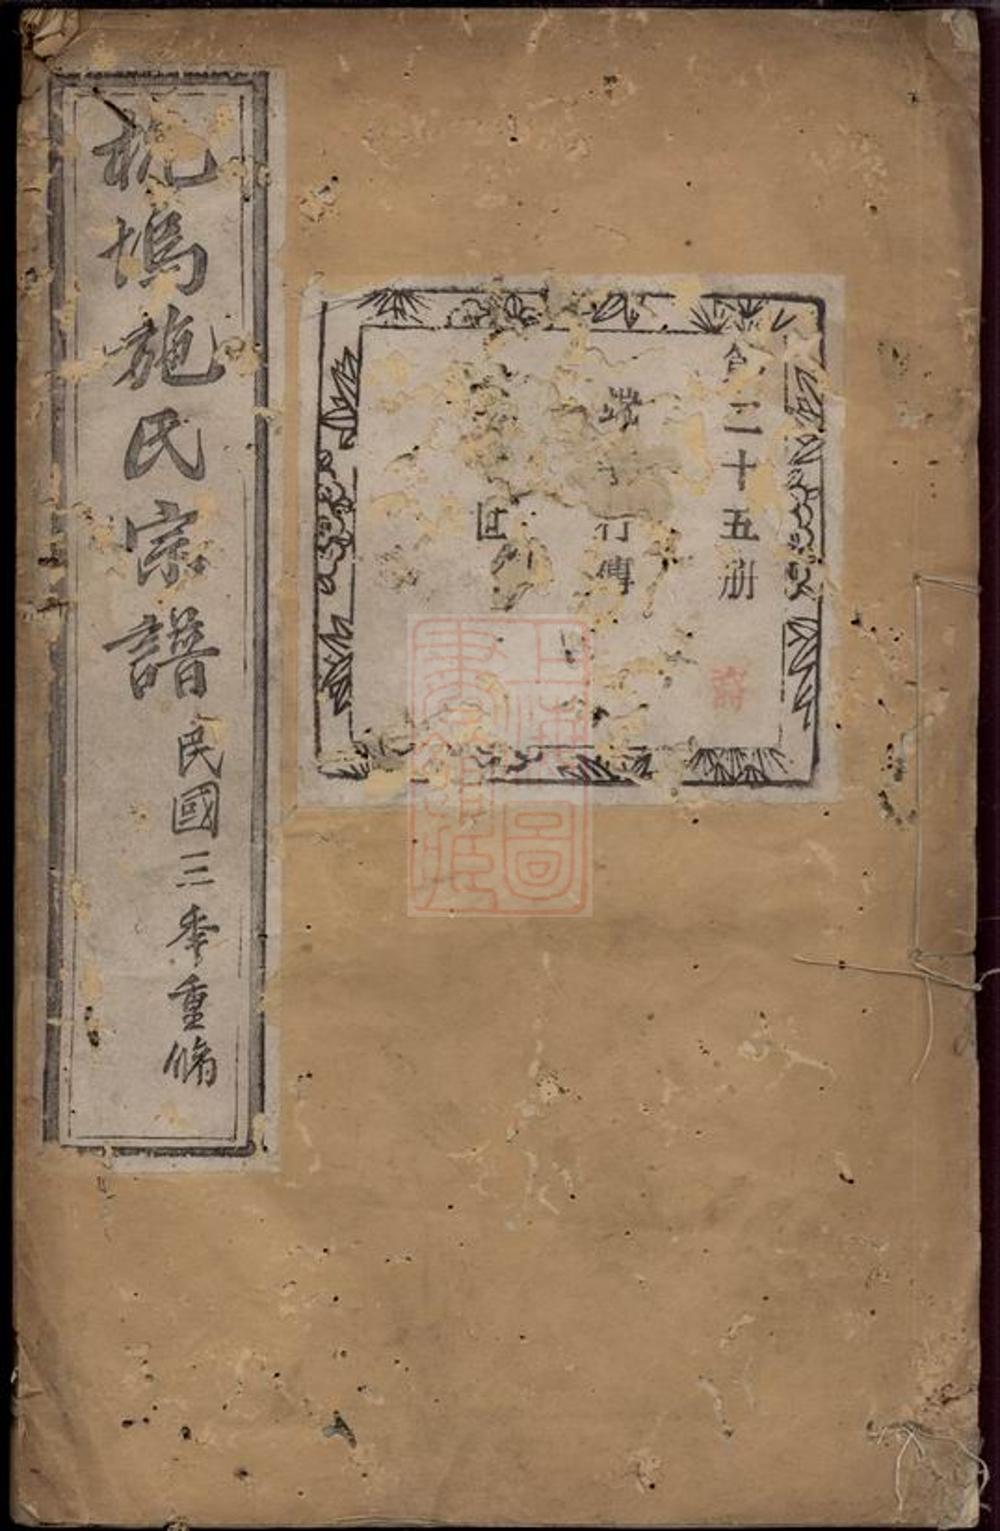 塢施氏宗譜
民國三年重脩
第二十五册
端 行傳
世
上海圖書館藏